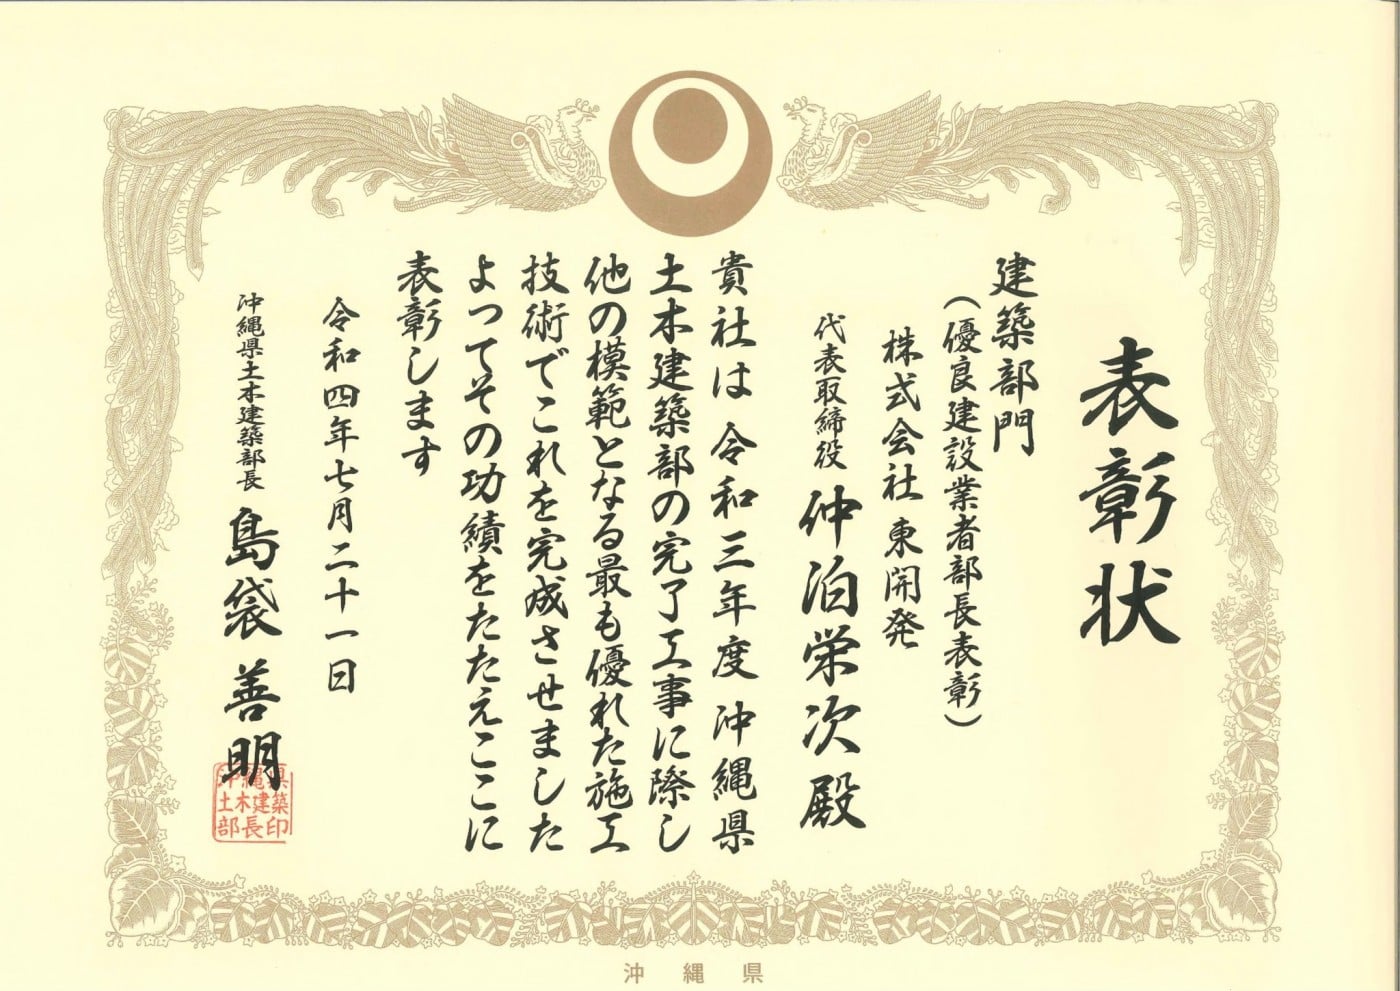 表彰状
建築部門
（優良建設業者部長表彰）
株式会社 東開発
代表取締役 仲泊栄次殿
貴社は令和三年度沖縄県
土木建築部の完了工事に際し
他の模範となる最も優れた施工
技術でこれを完成させました
よってその功績をたたえここに
表彰します
令和四年七月二十一日
沖縄県土木建築部長 島袋善明
沖縄県
土木建築
部長印
沖縄県